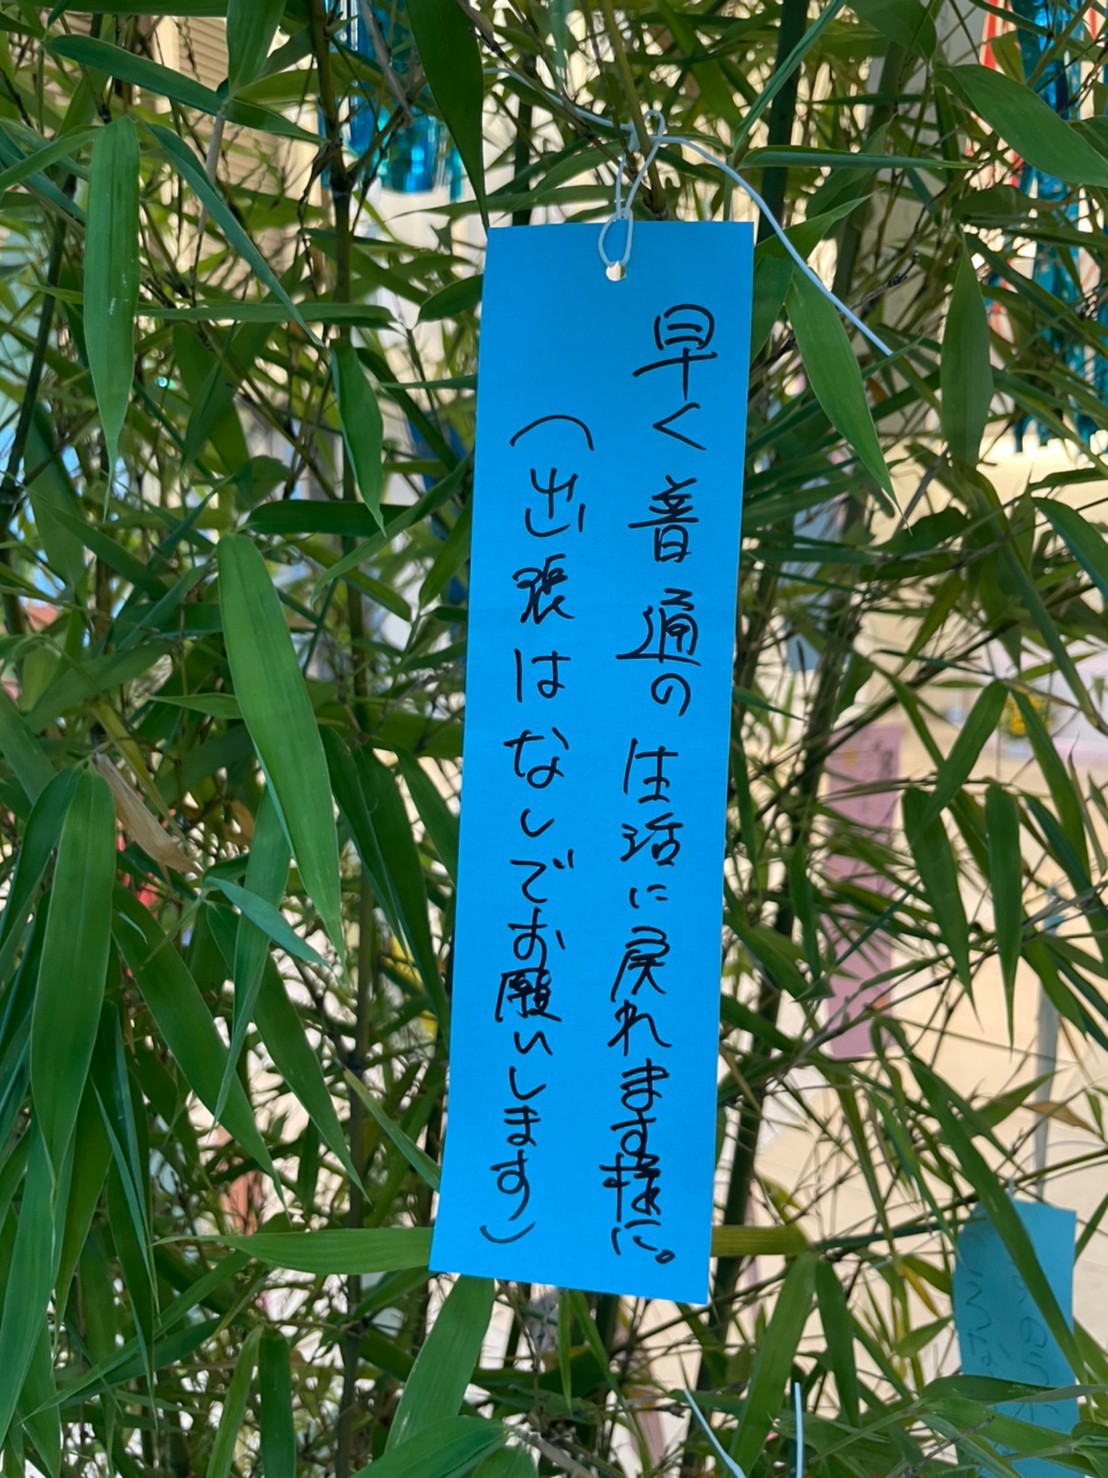 早く普通の生活に戻れます様に。
(出張はなしでお願いします)